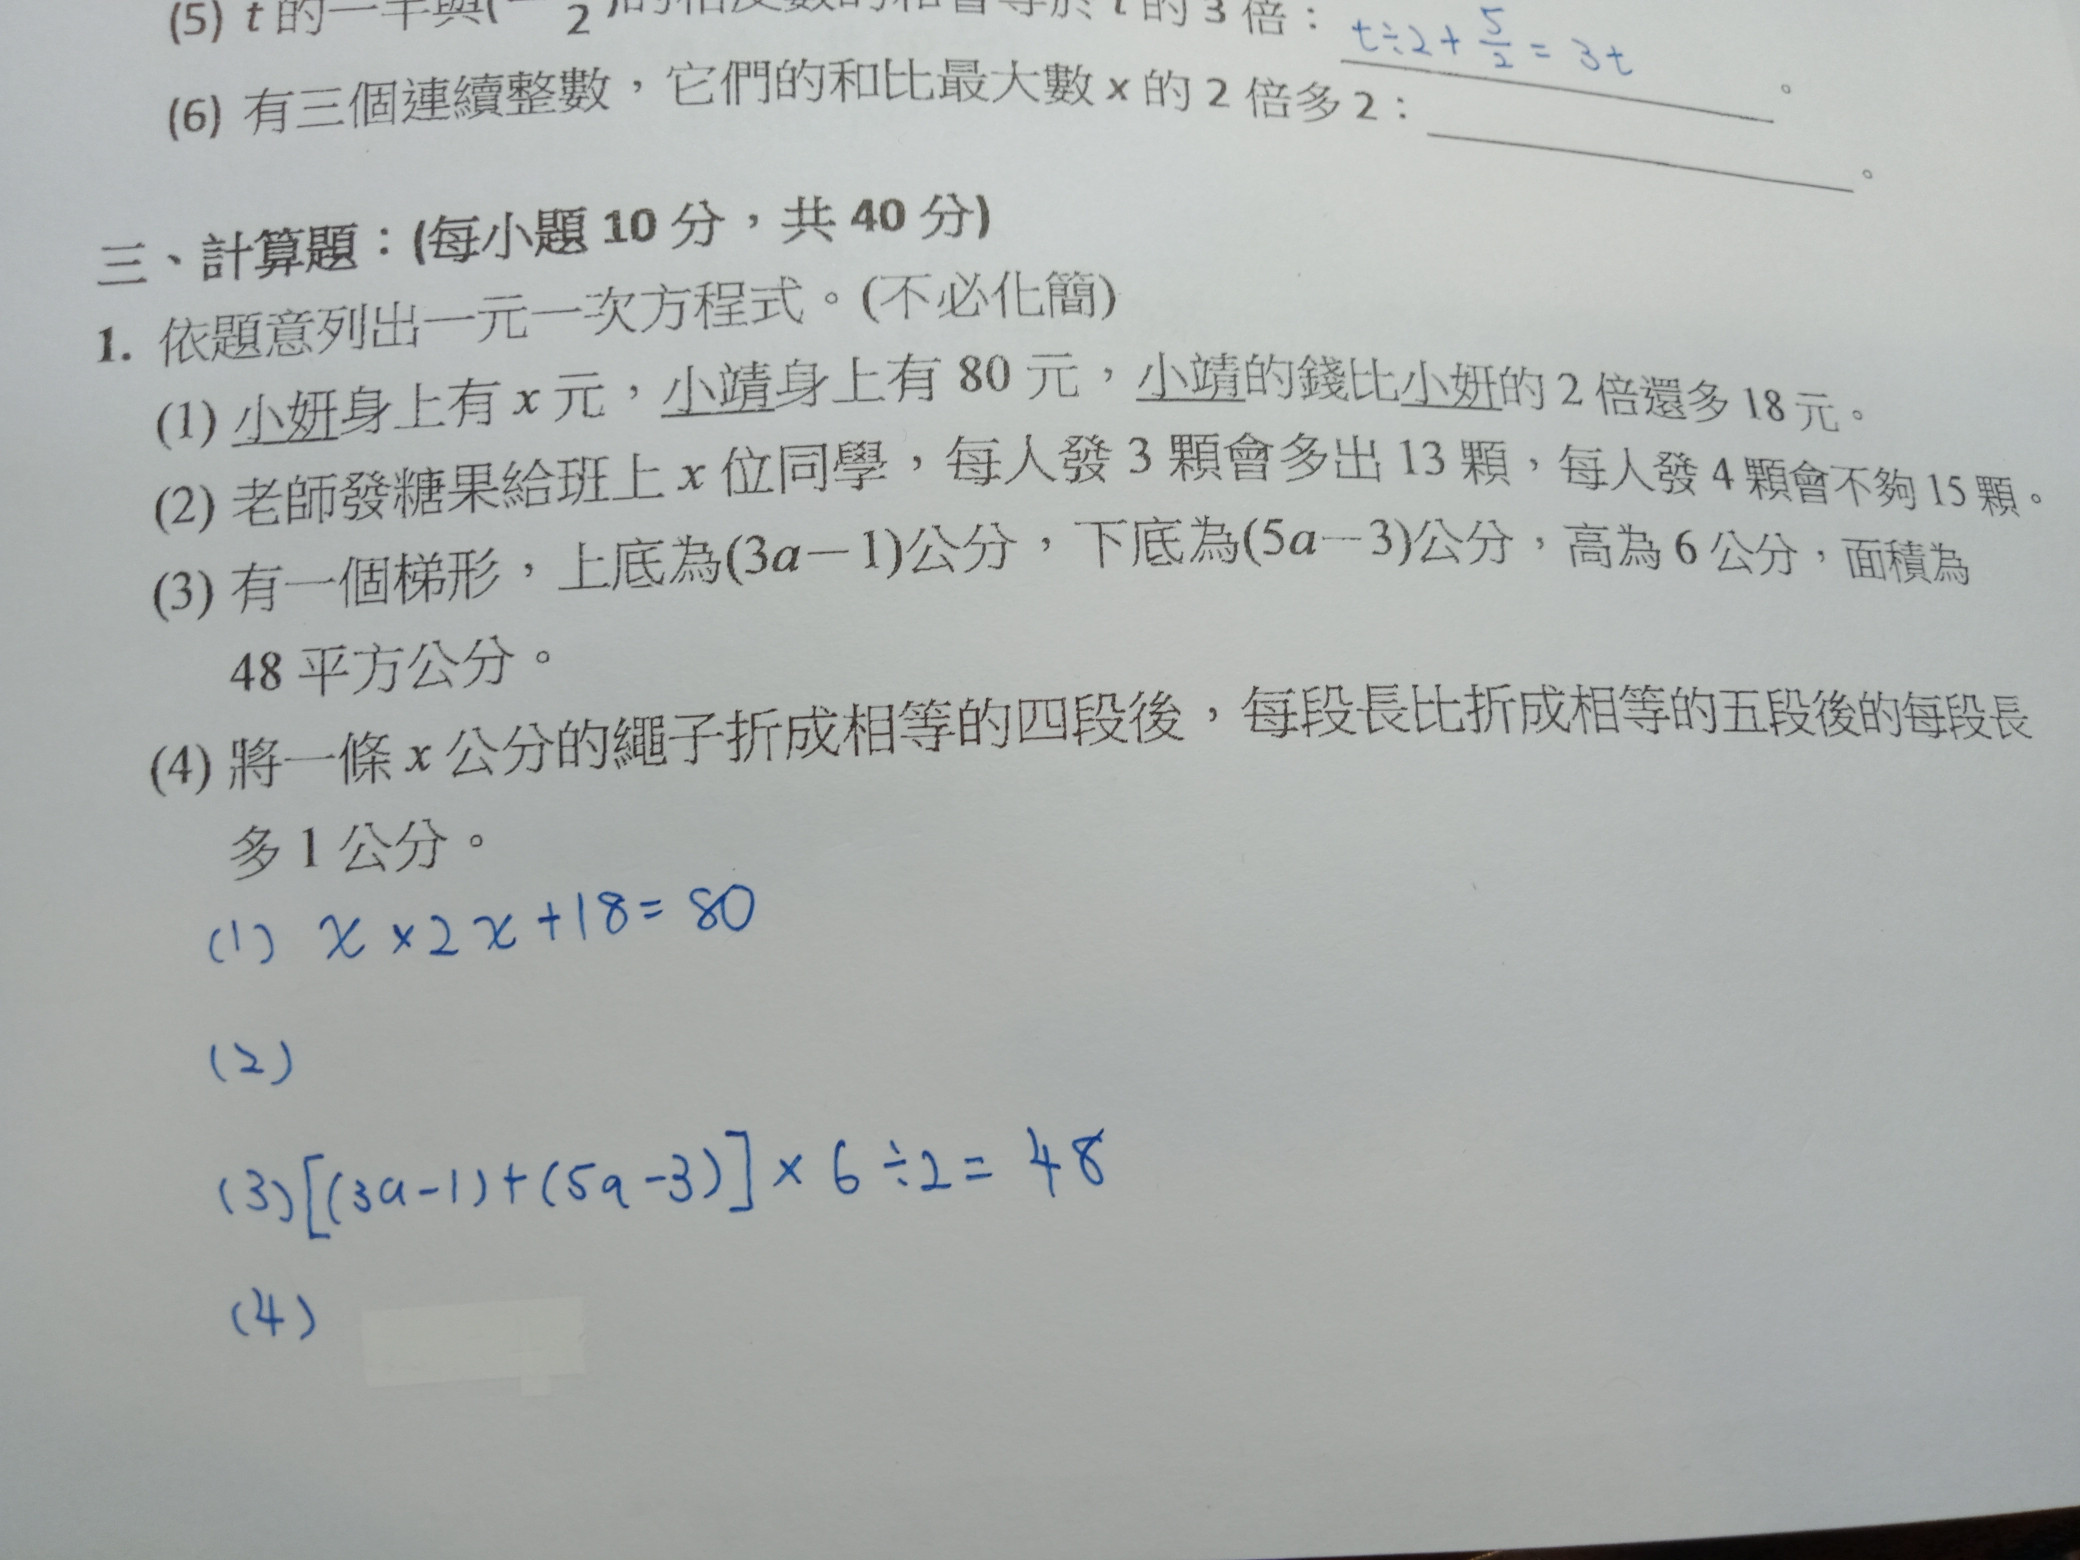 (5) t 的一半與(−   2 )的相反數的和會等於 t 的 3 倍： t÷2+5/2=3t 。
(6) 有三個連續整數，它們的和比最大數 x 的 2 倍多 2： 。
三、計算題：(每小題 10 分，共 40 分)
1. 依題意列出一元一次方程式。(不必化簡)
(1) 小妍身上有 x 元，小靖身上有 80 元，小靖的錢比小妍的 2 倍還多 18 元。
(2) 老師發糖果給班上 x 位同學，每人發 3 顆會多出 13 顆，每人發 4 顆會不夠 15 顆。
(3) 有一個梯形，上底為(3a－1)公分，下底為(5a－3)公分，高為 6 公分，面積為
48 平方公分。
(4) 將一條 x 公分的繩子折成相等的四段後，每段長比折成相等的五段後的每段長
多 1 公分。
(1) x×2x+18=80
(2)
(3)[(3a-1)+(5a-3)]×6÷2=48
(4)